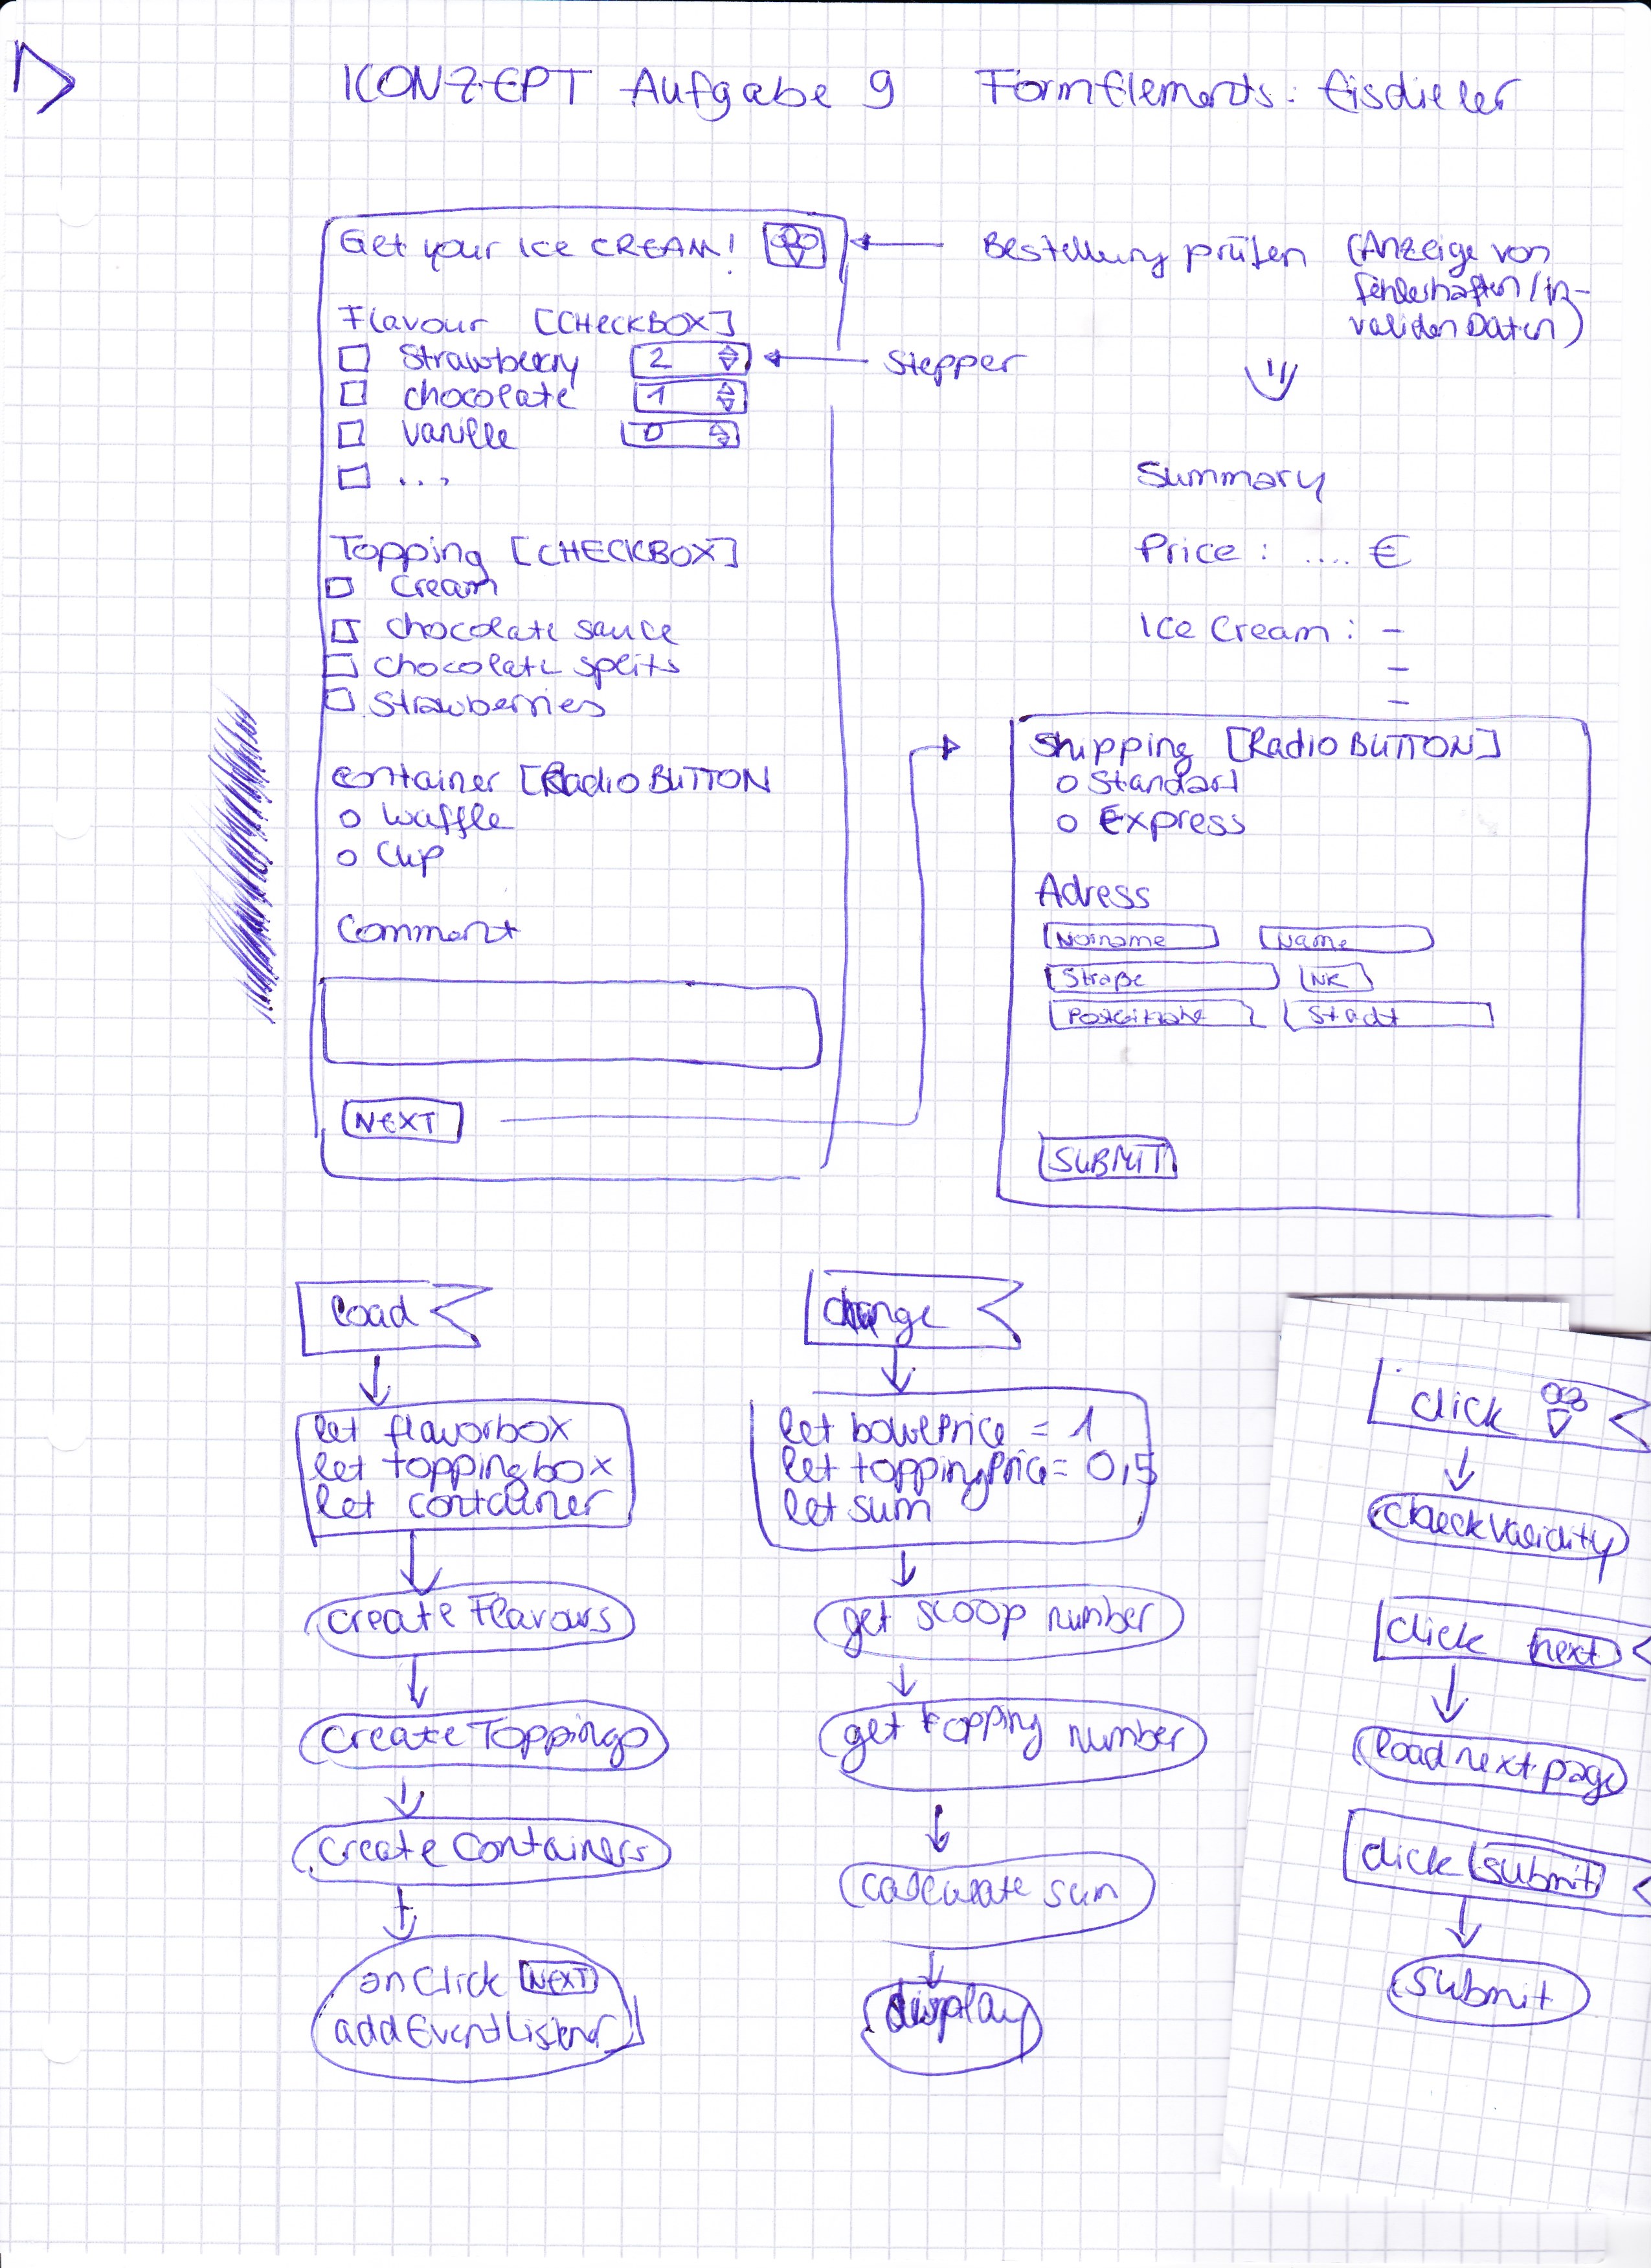 KONZEPT Aufgabe 9 FormElements: Eisdieler
Get your Ice CREAM!
Bestellung prüfen (Anzeige von
fehlerhaften / in-
validen Daten)
Flavour [CHECKBOX]
Strawberry 2
Stepper
chocolate 1
vanille 0
...
Summary
Price : .... €
Ice Cream : -
-
-
Topping [CHECKBOX]
Cream
chocolate sauce
chocolate splits
Strawberries
container [RadioBUTTON
Waffle
Cup
Comment
NEXT
Shipping [RadioBUTTON]
Standart
Express
Adress
Name
Straße NR
Stadt
SUBMIT
load
let flavorbox
let toppingbox
let container
create Flavours
create Toppings
create Containers
onClick NEXT
addEventListener
change
let bowlPrice = 1
let toppingPrice = 0,5
let sum
get scoop number
get topping number
calculate sum
display
click
checkValidity
click next
load next page
click submit
submit